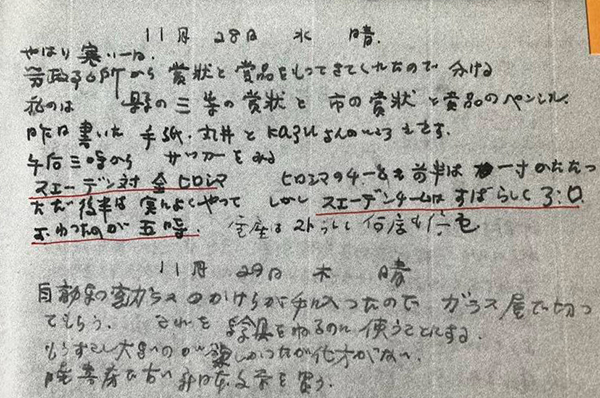 11月 28日 水 晴.
やはり 寒い一日.
から 賞状と賞品をもってきてくれたので 分ける
私のは 県の三等の賞状と 市の賞状と賞品のペンシル.
昨日書いた 手紙. 丸井と
午后三時から サッカーをみる
スエーデン対 全ヒロシマ ヒロシマのチームも前半は 一寸かたたっ
ただ後半は 実によくやって しかし スエーデンチームは すばらしく 3:0.
おわったのが 五時. 電産はストらしく 何度も停電
11月 29日 木 晴
自動車の窓ガラスのかけらが手に入ったので ガラス屋で切っ
てもらう. これを 絵具をねるのに 使うことにする.
もうすこし大きいのが欲しかったが仕方がない.
で古い